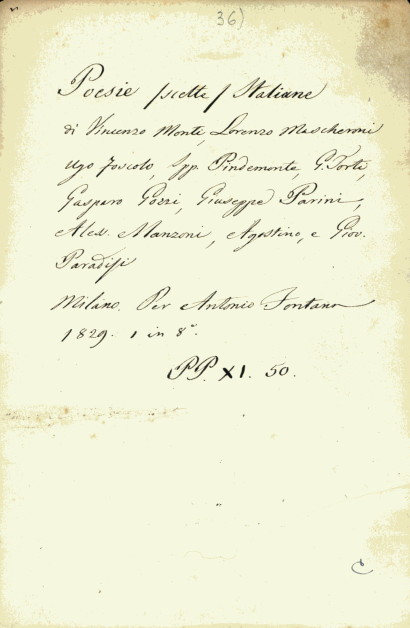 36)
Poesie scelte Italiane
di Vincenzo Monti, Lorenzo Mascheroni
Ugo Foscolo, Ipp. Pindemonte, G. Torti,
Gasparo Gozzi, Giuseppe Parini,
Aless. Manzoni, Agostino, e Giov.
Paradisi
Milano. Per Antonio Fontana
1829. 1 in 8°.
PP. XI. 50.